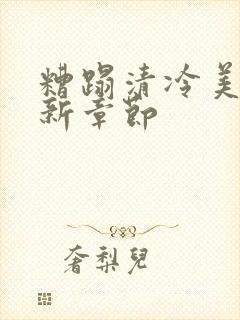 糟蹋清冷美
新章節
奢梨兒